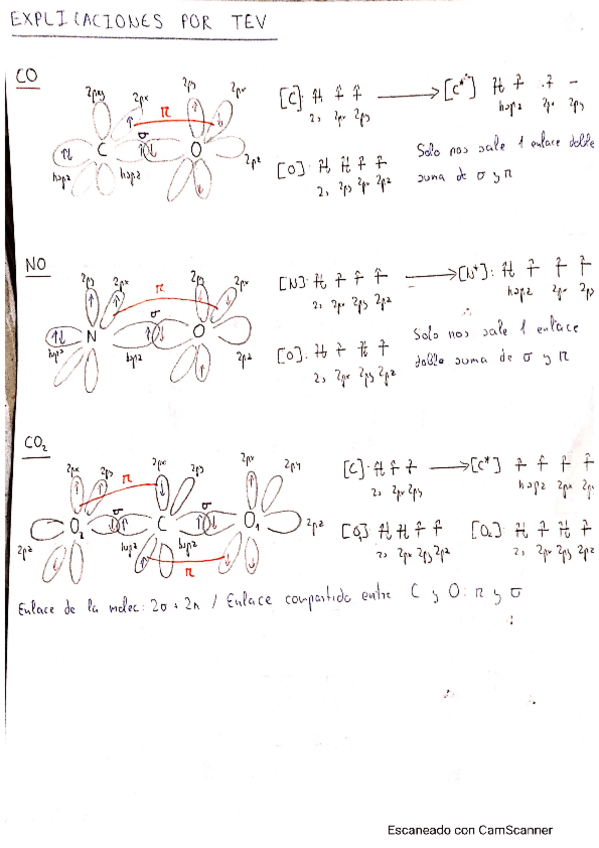 EXPLICACIONES POR TEV
CO
2py 2px 2py 2px
[C]: [C*]
2s 2px 2py hspz 2px 2py
π
σ
C O
2pz
hspz hspz
[O]:
2s 2py 2px 2pz
Solo nos sale 1 enlace doble
suma de σ y π
NO
2py 2px 2py 2px
π
[N]: [N*]:
2s 2px 2py 2pz hspz 2px 2py
σ
N O
hspz hspz 2pz
[O]:
2s 2px 2py 2pz
Solo nos sale 1 enlace
doble suma de σ y π
CO2
2px 2py 2px 2py 2px 2py
π
[C]: [C*]
2s 2px 2py hspz 2px 2py
σ σ
O2 C O1
2pz hspz hspz 2pz
[O1] [O2]
2s 2px 2py 2pz 2s 2px 2py 2pz
π
Enlace de la molec: 2σ + 2π / Enlace compartido entre C y O: π y σ
Escaneado con CamScanner